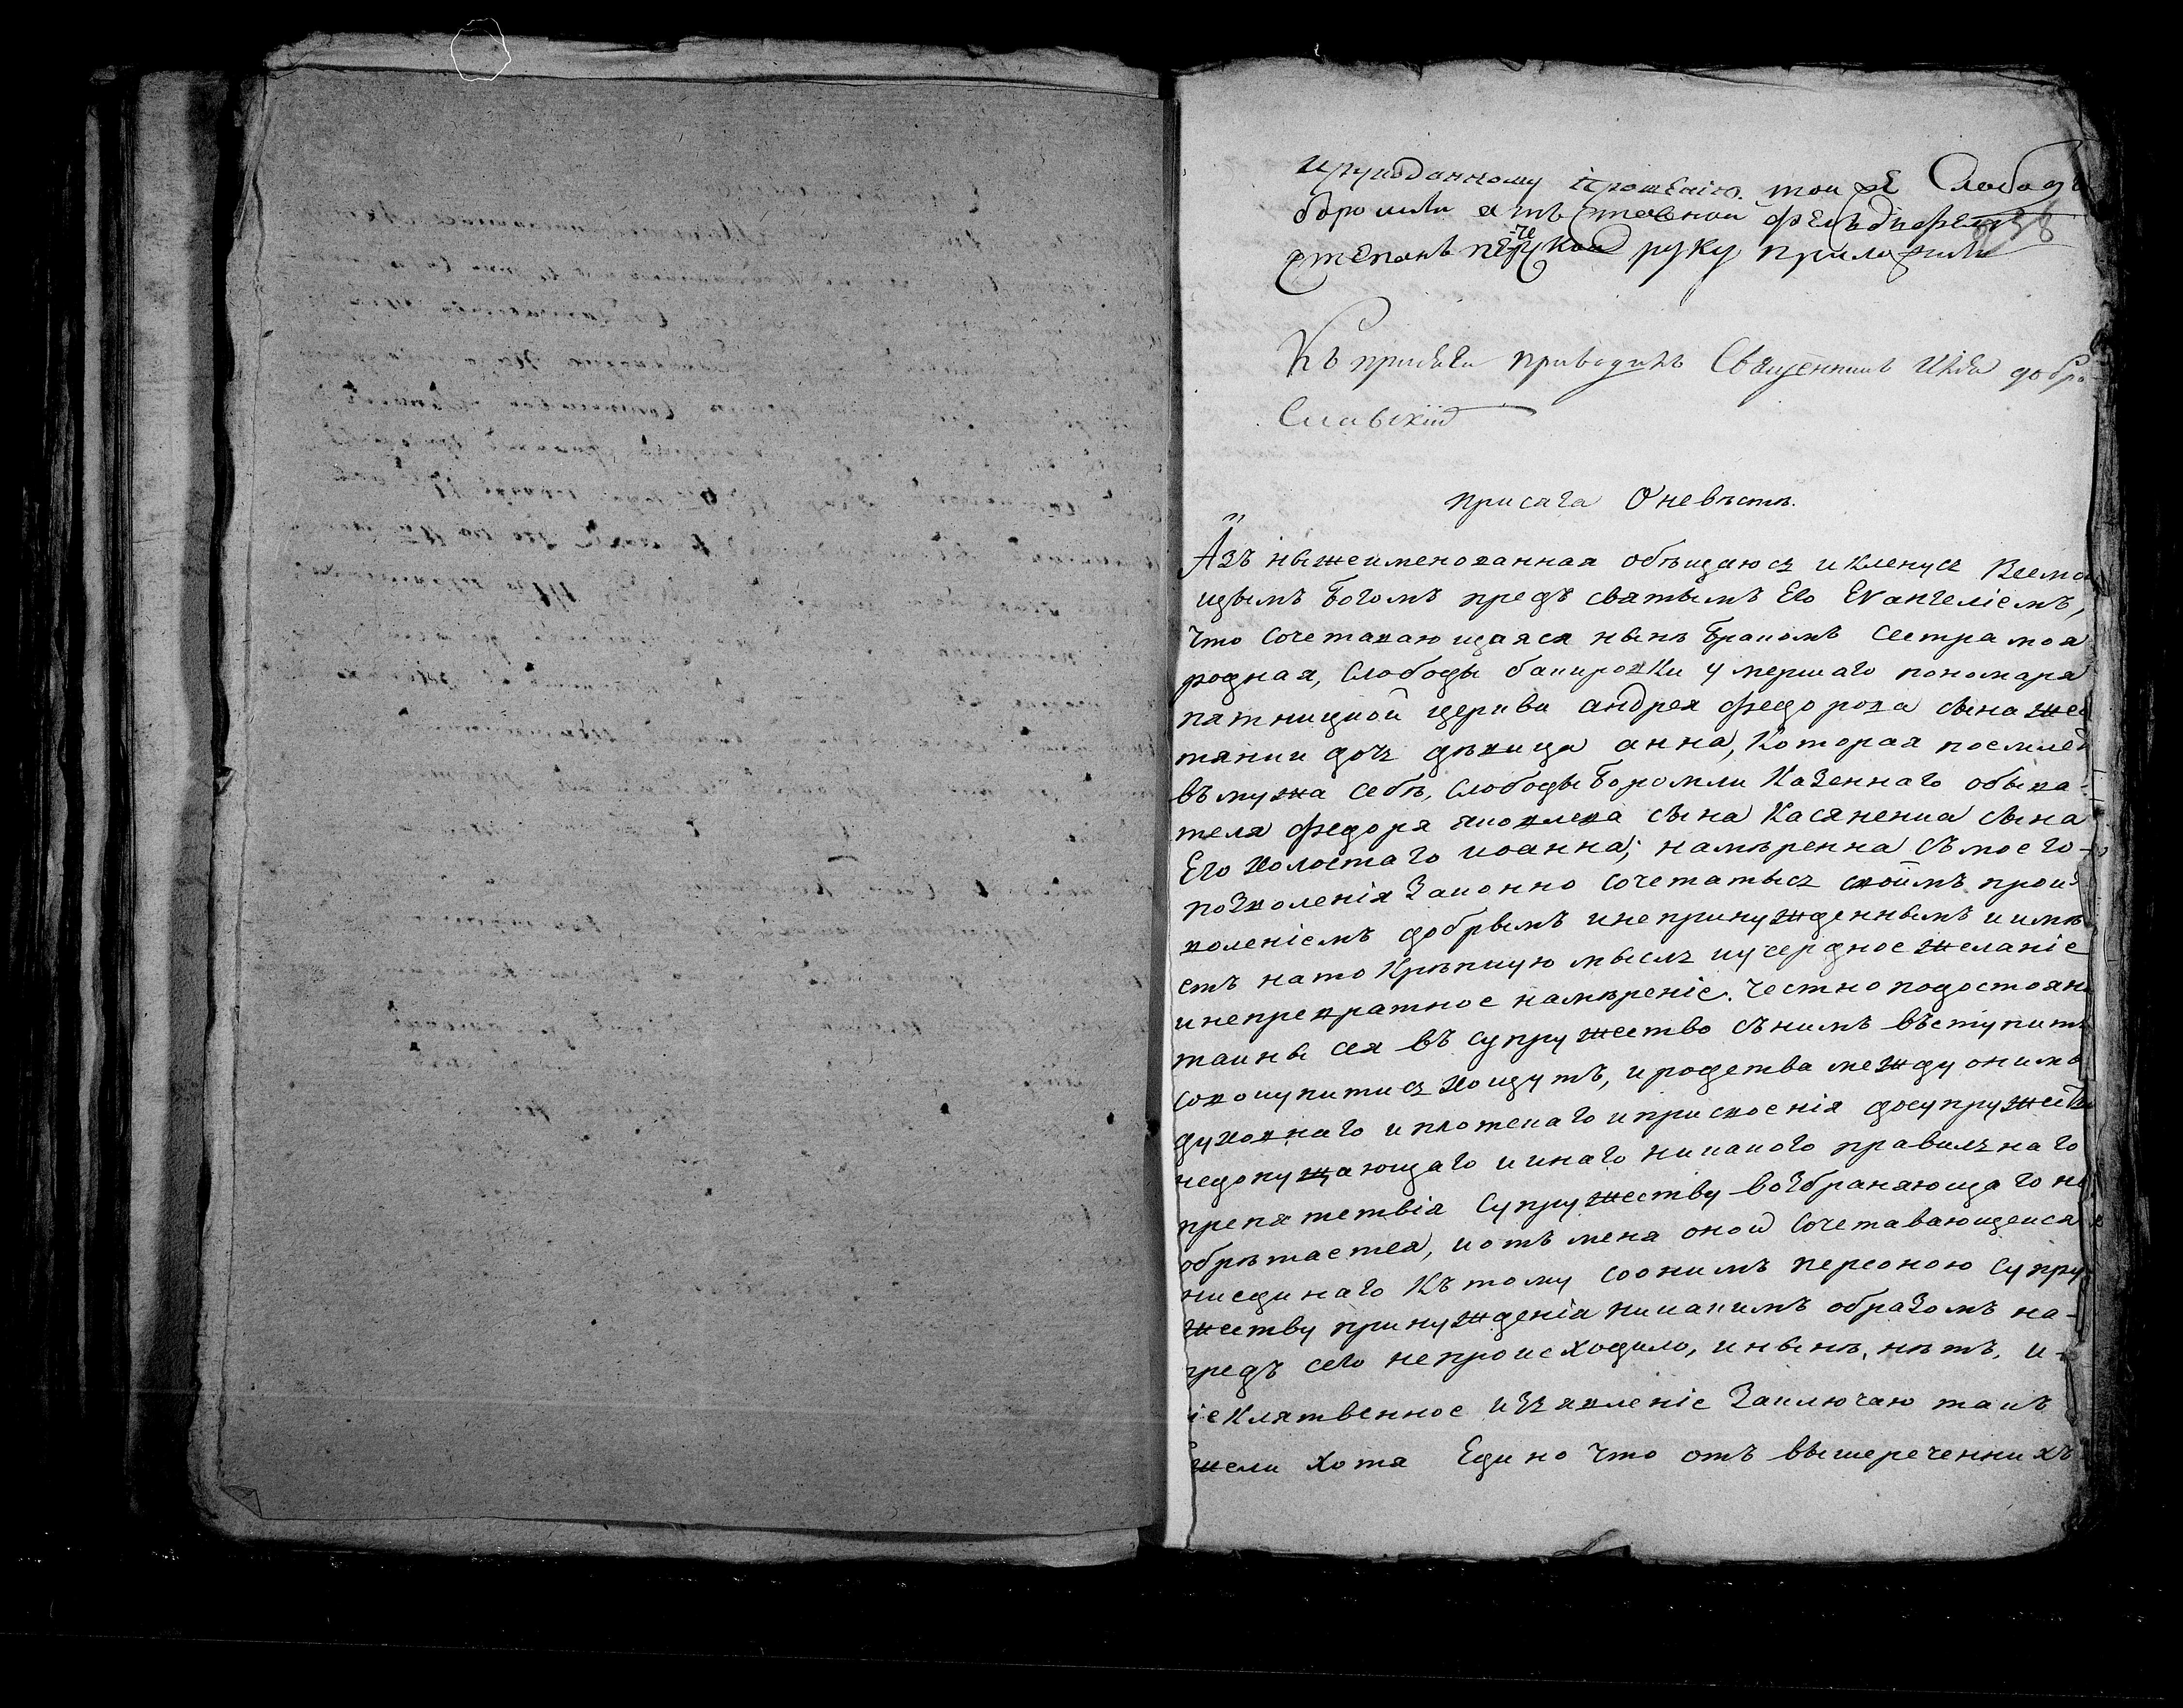 прошению той же Слобод
боромли
степанъ руку приложилъ
Къ присяги приводилъ Священникъ Илія добро
Славскій
присяга О невѣстѣ.
Азъ нижеименованная обѣщаюсь и кленусь Всемогу
щымъ Богомъ предъ святымъ Его Евангеліемъ,
что сочетавающаяся нынѣ бракомъ сестра моя
родная, Слободы бакировки умершаго пономаря
пятницкой церкви андрея федорова сына
дочь дѣвица анна, Которая
въ мужа себѣ, Слободы Боромли Казеннаго обыва-
теля федора яковлева сына Касяненка сына
Его холостаго иоанна; намѣренна съ моего
позволенія Законно сочетатысь своимъ произ
воленіемъ добрымъ и непринужденнымъ и имѣ
етъ на то крѣпкую мысль и усердное желаніе
и непревратное намѣреніе. честно подостоян
таины сея въ супружество съ нимъ въступит
совокупитись хощутъ, и родства между оними
духовнаго и плотскаго и присвоенія до супружеств
недопущающаго и инаго никакого правилнаго
препятствія супружеству возбраняющаго не
обрѣтается, и отъ меня оной сочетавающейся
ни единаго Къ тому со онимъ персоною супру
жеству принужденія никакимъ образомъ на-
предъ сего непроисходило, и нынѣ нѣтъ, и-
іе клятвенное изъявленіе Заключаю такъ
жели хотя Едино что отъ вышереченнихъ